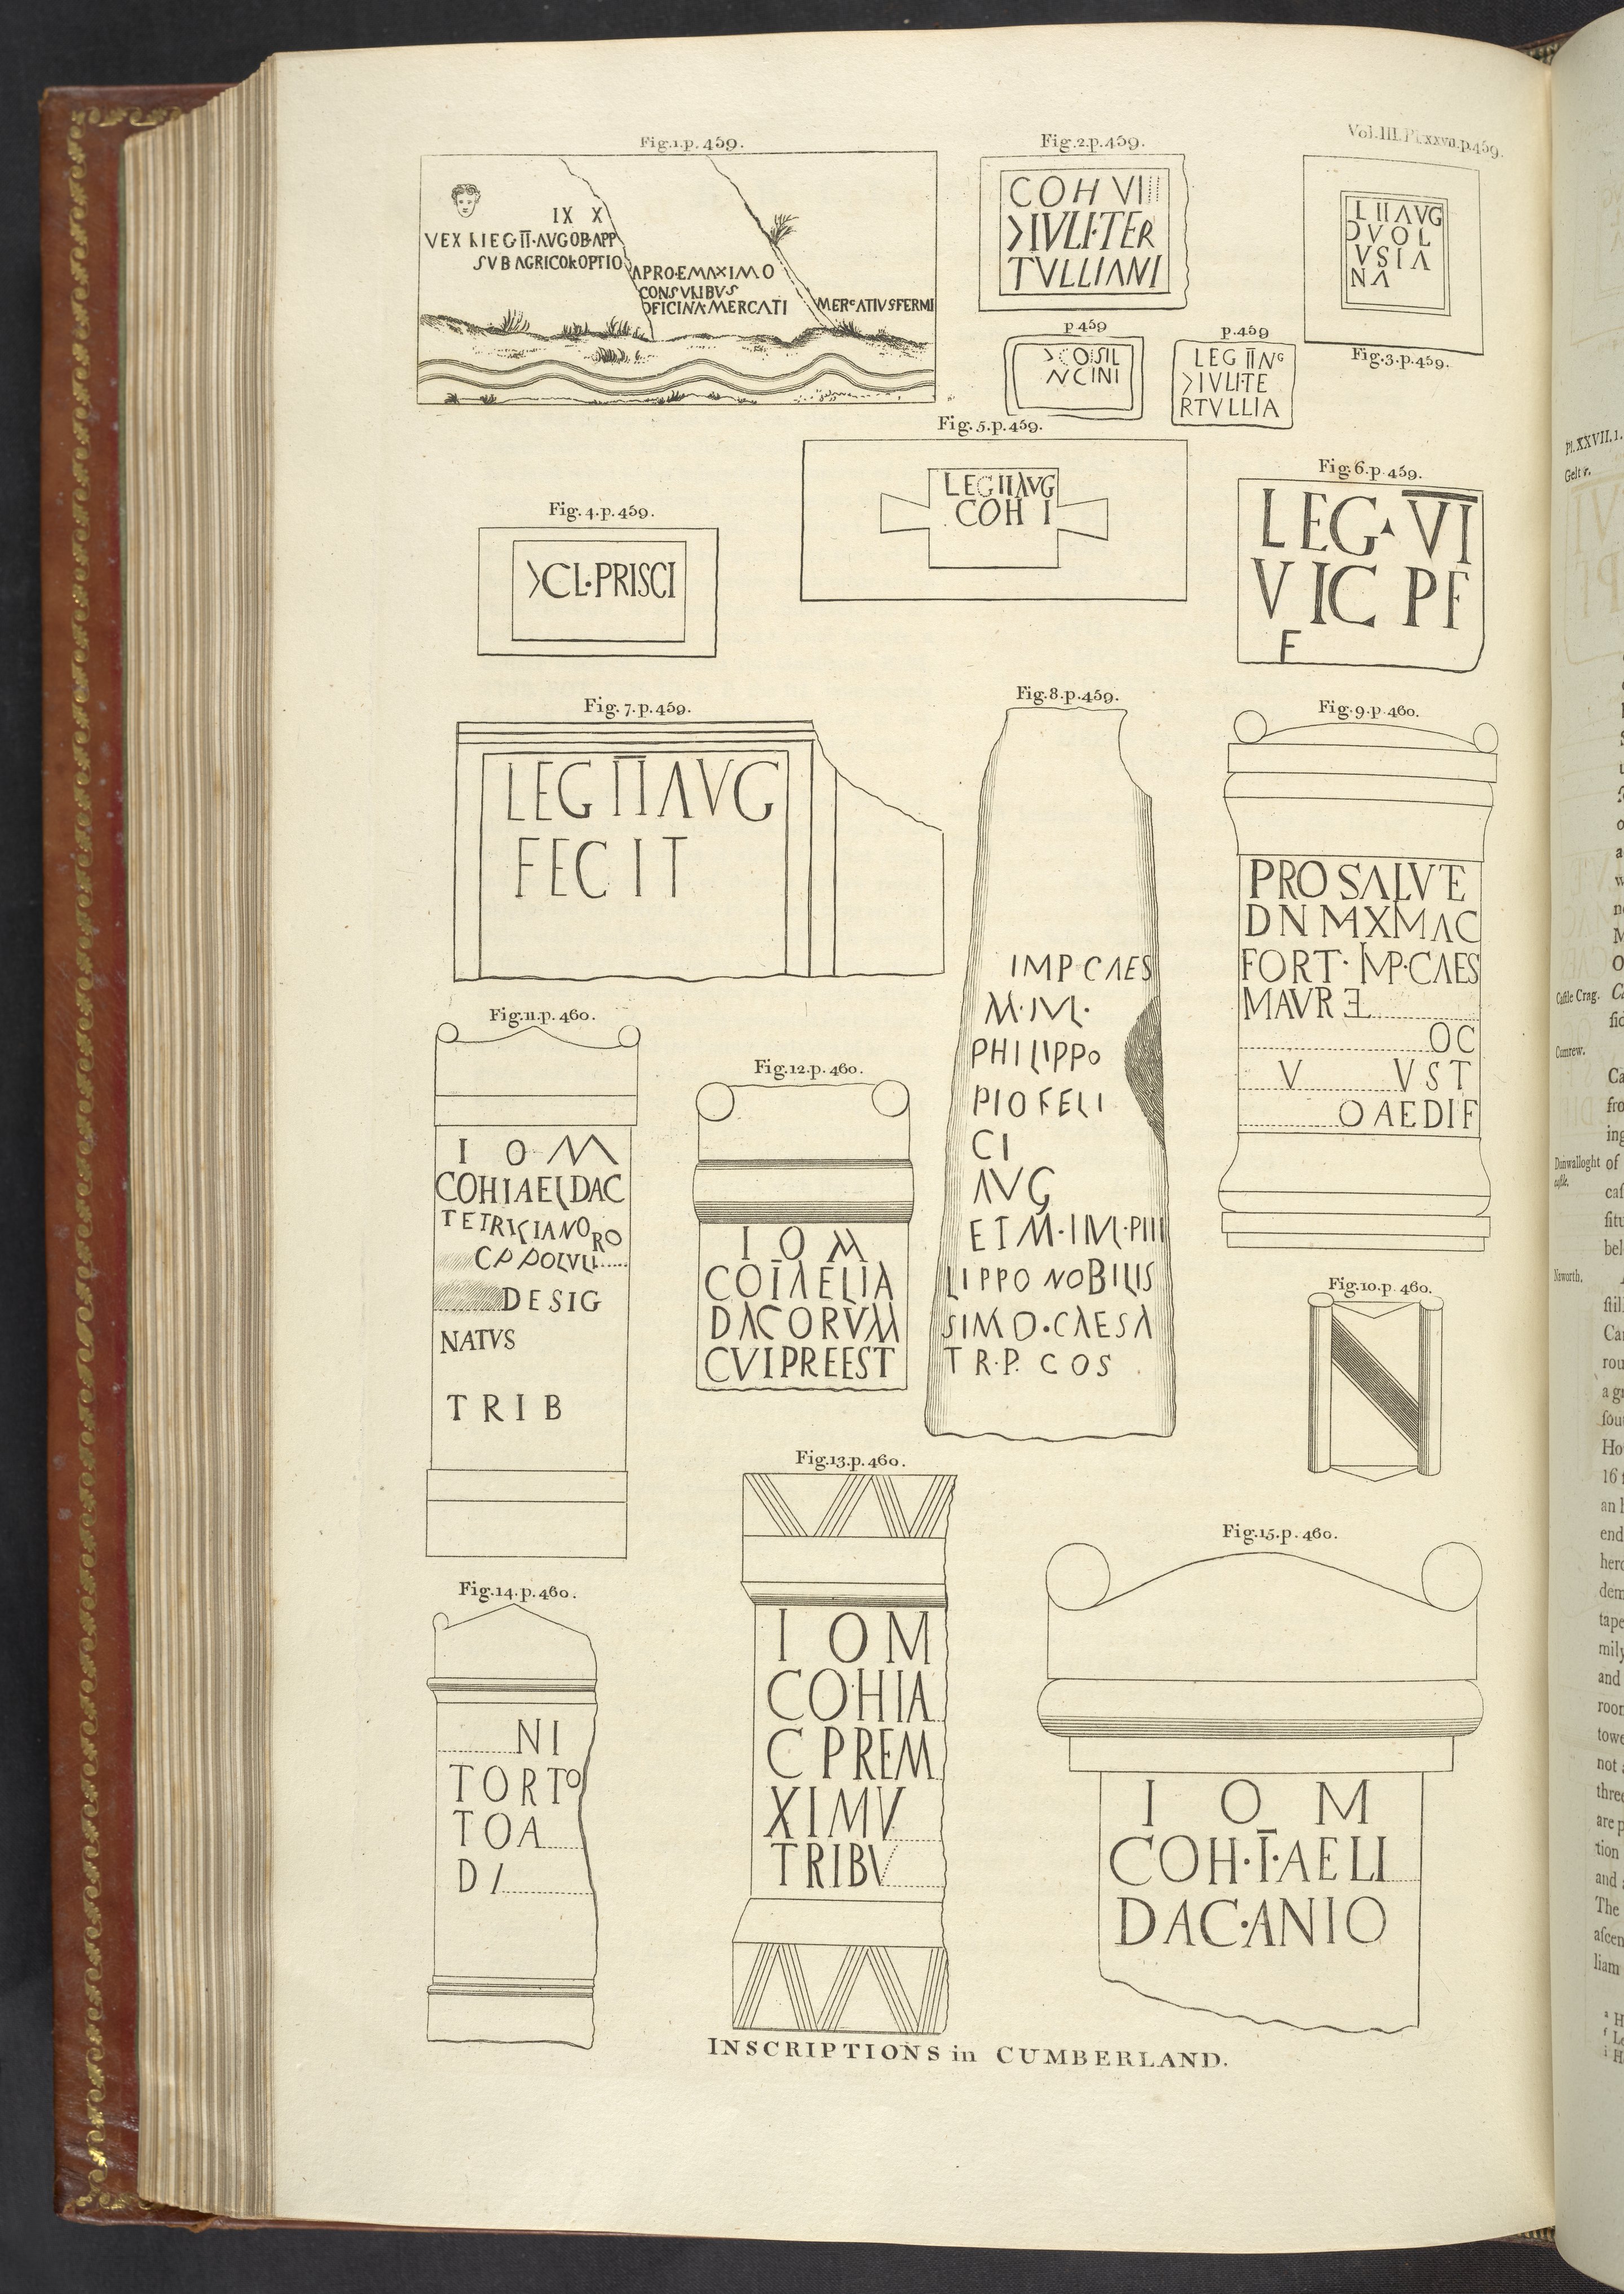 Vol.III.Pl.xxvii.p.459.
Fig.1.p.459.
IX X
VEX LLEG II·AVG OB·APP
SVB AGRICOLOPTIO
APRO·EMAXIMO
CONSVLIBVS
OFICINA·MERCATI
MERCATIVSFERMI
Fig.2.p.459.
COH VIIII
>IVLI·TER
TVLLIANI
L II AVG
ƆVOL
VSIA
NA
Fig.3.p.459.
p.459
>COSIL
NCINI
p.459
LEG II NG
>IVLI·TE
RTVLLIA
Fig.4.p.459.
>CL·PRISCI
Fig.5.p.459.
LEG II AVG
COH I
Fig.6.p.459.
LEG VI
VIC PF
F
Fig.7.p.459.
LEG II AVG
FECIT
Fig.8.p.459.
IMP CAES
M·IVL·
PHILIPPO
PIO FELI
CI
AVG
ET M·IVL·PHI
LIPPO NOBILIS
SIMO·CAESA
TR·P. COS
Fig.9.p.460.
PRO SALVTE
DN MXMAC
FORT· IMP·CAES
MAVR E
OC
V VST
O AEDIF
Fig.10.p.460.
N
Fig.11.p.460.
I O M
COH I AEL DAC
TETRICIANORO
CP POLVLI
DESIG
NATVS
TRIB
Fig.12.p.460.
I O M
CO I AELIA
DACORVM
CVIPREEST
Fig.13.p.460.
I O M
COHIA
C PREM
XIMV
TRIBV
Fig.14.p.460.
NI
TORTO
TOA
DI
Fig.15.p.460.
I O M
COH·I·AELI
DAC·ANIO
INSCRIPTIONS in CUMBERLAND.
Pl.XXVII.1.
Gelt r.
Castle Crag.
Cumrew.
Dunwalloght
castle.
Naworth.